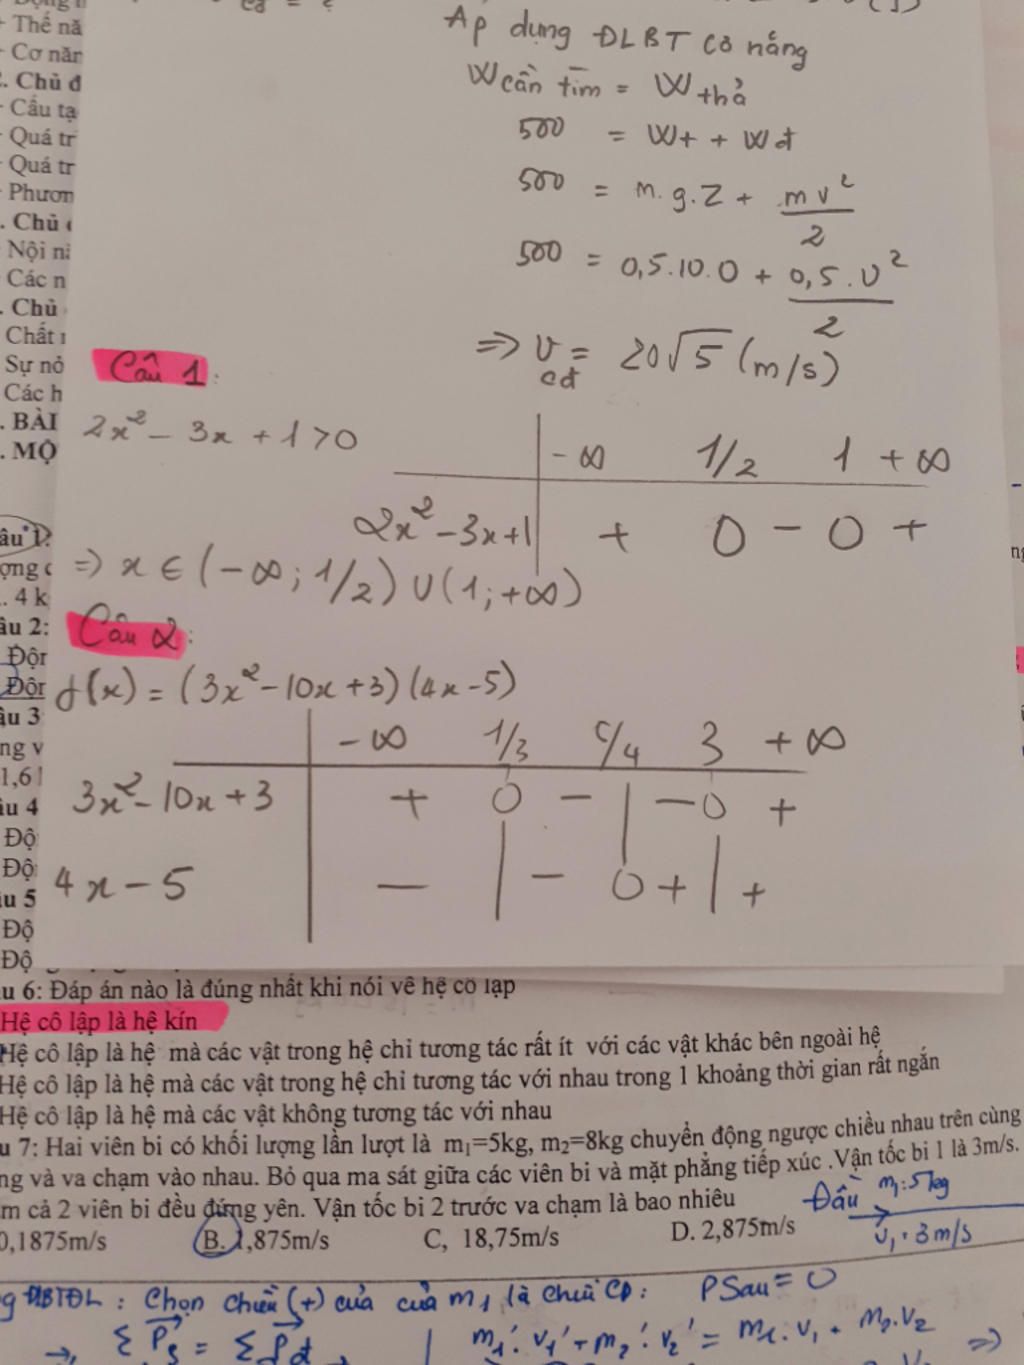 Áp dụng ĐLBT cơ năng
W cần tìm = W thả
500 = Wt + Wđ
500 = m.g.Z + mv²/2
500 = 0,5.10.0 + 0,5.v²/2
=> v cđ = 20√5 (m/s)
Câu 1:
2x² - 3x + 1 > 0
-∞ 1/2 1 +∞
2x² - 3x + 1 + 0 - 0 +
=> x ∈ (-∞; 1/2) ∪ (1; +∞)
Câu 2:
f(x) = (3x² - 10x + 3)(4x - 5)
-∞ 1/3 5/4 3 +∞
3x² - 10x + 3 + 0 - | - 0 +
4x - 5 - | - 0 + | +
+ Thế nă
- Cơ năn
. Chủ đ
- Cấu tạ
- Quá tr
- Quá tr
- Phươn
. Chủ
Nội
Các n
. Chủ
Chất
Sự nở
Các h
. BÀI
. MỘ
âu 1:
. 4 k
âu 2:
Độn
Độn
âu 3
ng v
1,6
âu 4
Độ
Độ
âu 5
Độ
Độ
u 6: Đáp án nào là đúng nhất khi nói về hệ cô lập
Hệ cô lập là hệ kín
Hệ cô lập là hệ mà các vật trong hệ chỉ tương tác rất ít với các vật khác bên ngoài hệ
Hệ cô lập là hệ mà các vật trong hệ chỉ tương tác với nhau trong 1 khoảng thời gian rất ngắn
Hệ cô lập là hệ mà các vật không tương tác với nhau
u 7: Hai viên bi có khối lượng lần lượt là m₁=5kg, m₂=8kg chuyển động ngược chiều nhau trên cùng
ng và va chạm vào nhau. Bỏ qua ma sát giữa các viên bi và mặt phẳng tiếp xúc .Vận tốc bi 1 là 3m/s.
m cả 2 viên bi đều đứng yên. Vận tốc bi 2 trước va chạm là bao nhiêu
0,1875m/s B. 1,875m/s C, 18,75m/s D. 2,875m/s
Đầu m₁: 5kg
v₁ = 3m/s
g ĐLBTĐL : Chọn chiều (+) của của m₁ là chiều CĐ: P Sau = 0
Σ P⃗s = Σ P⃗đ
m₁'.v₁' + m₂'.v₂' = m₁.v₁ + m₂.v₂ =>